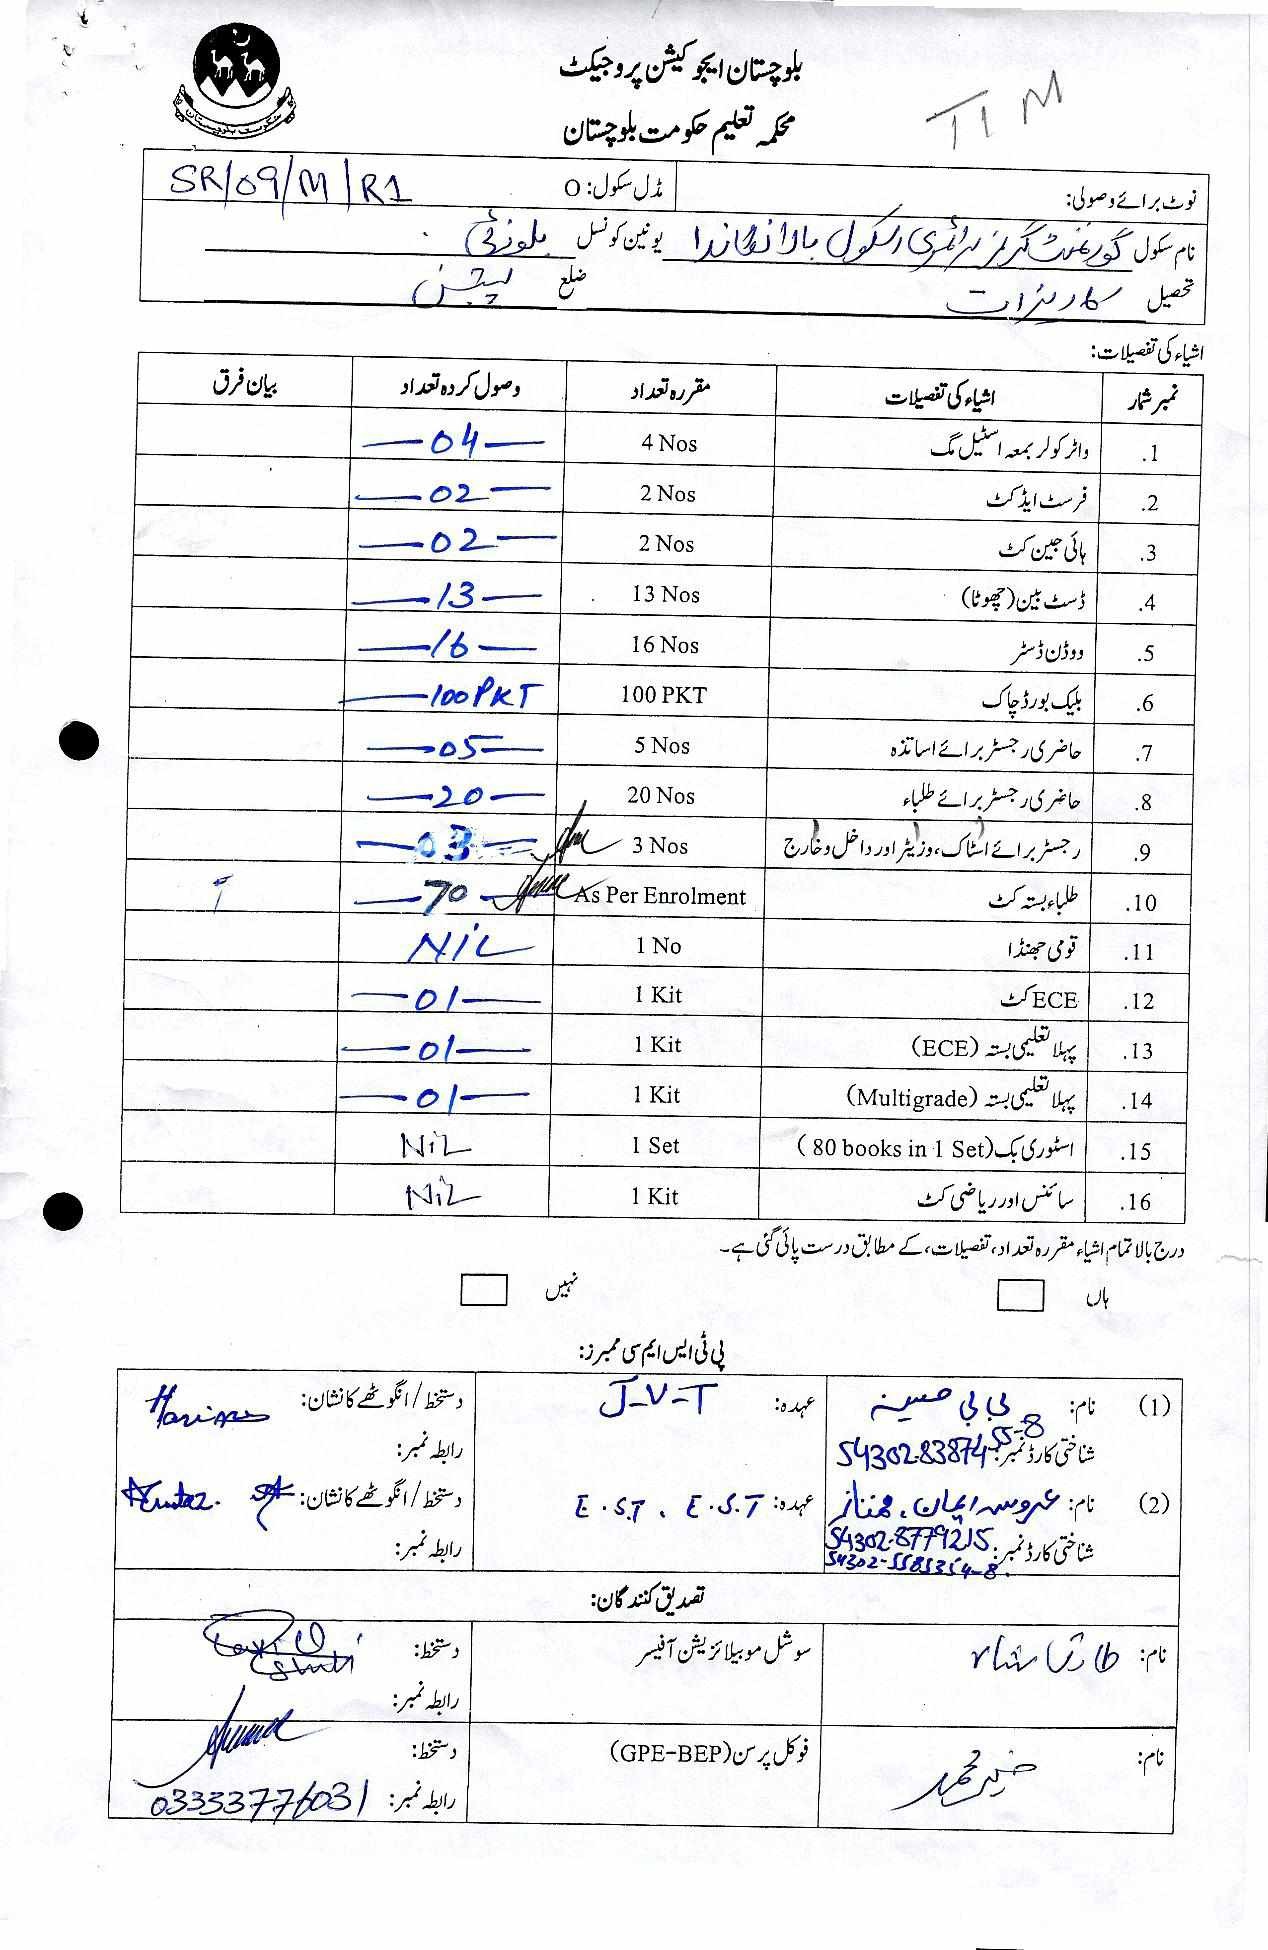 بلوچستان ایجوکیشن پروجیکٹ
TIM
محکمہ تعلیم حکومت بلوچستان
نوٹ برائے وصولی: مڈل سکول: O SR/09/M/R1
نام سکول گورنمنٹ گرلز پرائمری اسکول یونین کونسل
تحصیل کاریزات ضلع پشین
اشیاء کی تفصیلات:
نمبر شمار اشیاء کی تفصیلات مقررہ تعداد وصول کردہ تعداد بیان فرق
1. واٹر کولر بمعہ اسٹیل مگ 4 Nos 04
2. فرسٹ ایڈ کٹ 2 Nos 02
3. ہائی جین کٹ 2 Nos 02
4. ڈسٹ بین (چھوٹا) 13 Nos 13
5. ووڈن ڈسٹر 16 Nos 16
6. بلیک بورڈ چاک 100 PKT 100 PKT
7. حاضری رجسٹر برائے اساتذہ 5 Nos 05
8. حاضری رجسٹر برائے طلباء 20 Nos 20
9. رجسٹر برائے اسٹاک، وزیٹر اور داخل و خارج 3 Nos 03
10. طلباء بستہ کٹ As Per Enrolment 70
11. قومی جھنڈا 1 No NiL
12. ECE کٹ 1 Kit 01
13. پہلا تعلیمی بستہ (ECE) 1 Kit 01
14. پہلا تعلیمی بستہ (Multigrade) 1 Kit 01
15. اسٹوری بک (80 books in 1 Set) 1 Set NiL
16. سائنس اور ریاضی کٹ 1 Kit NiL
درج بالا تمام اشیاء مقررہ تعداد، تفصیلات، کے مطابق درست پائی گئی ہے۔
ہاں نہیں
پی ٹی ایس ایم سی ممبرز:
(1) نام: بی بی حسینہ عہدہ: J-V-T دستخط / انگوٹھے کا نشان:
شناختی کارڈ نمبر: 54302-8387455-8 رابطہ نمبر:
(2) نام: عروسہ ایمان، ممتاز عہدہ: E.S.T, E.S.T دستخط / انگوٹھے کا نشان:
شناختی کارڈ نمبر: 54302-8779215 رابطہ نمبر:
54302-5585354-8
تصدیق کنندگان:
نام: طارق شاہ سوشل موبیلائزیشن آفیسر دستخط:
رابطہ نمبر:
نام: فوکل پرسن (GPE-BEP) دستخط:
رابطہ نمبر: 03333776031